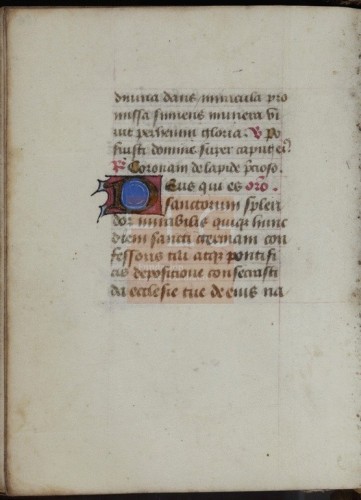 diuina dans miracula pro
missa sumens munera vi
uit perhenni gloria. V Po
suisti domine super caput ei9
R Coronam de lapide p̄cioso.
Deus qui es orō.
sanctorum splen
dor mirabilis quiqȝ hunc
diem sancti germani con
fessoris tui atqȝ pontifi
cis depositione consecrasti
da ecclesie tue de eius na